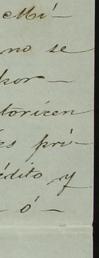 Mi-
no se
por-
toricen
es pri-
édito y
- ó -